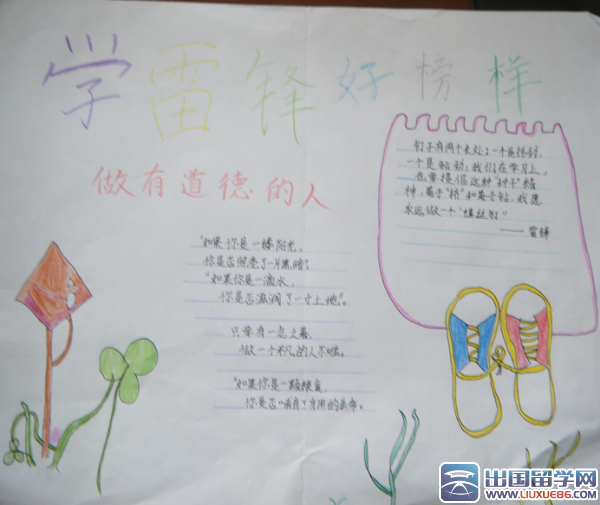 学雷锋好榜样
做有道德的人
钉子有两个长处：一个是挤劲，
一个是钻劲；我们在学习上，
也要提倡这种精
神，善于"挤"和善于钻。我愿
永远做一个"螺丝钉"
——雷锋
"如果你是一缕阳光，
你是否照亮了一片黑暗"。
"如果你是一滴水，
你是否滋润了一寸土地"。
只要有一息之
做一个的人不难。
"如果你是一颗粮食，
你是否哺育了有用的生命。
出国留学网
WWW.LIUXUE86.COM